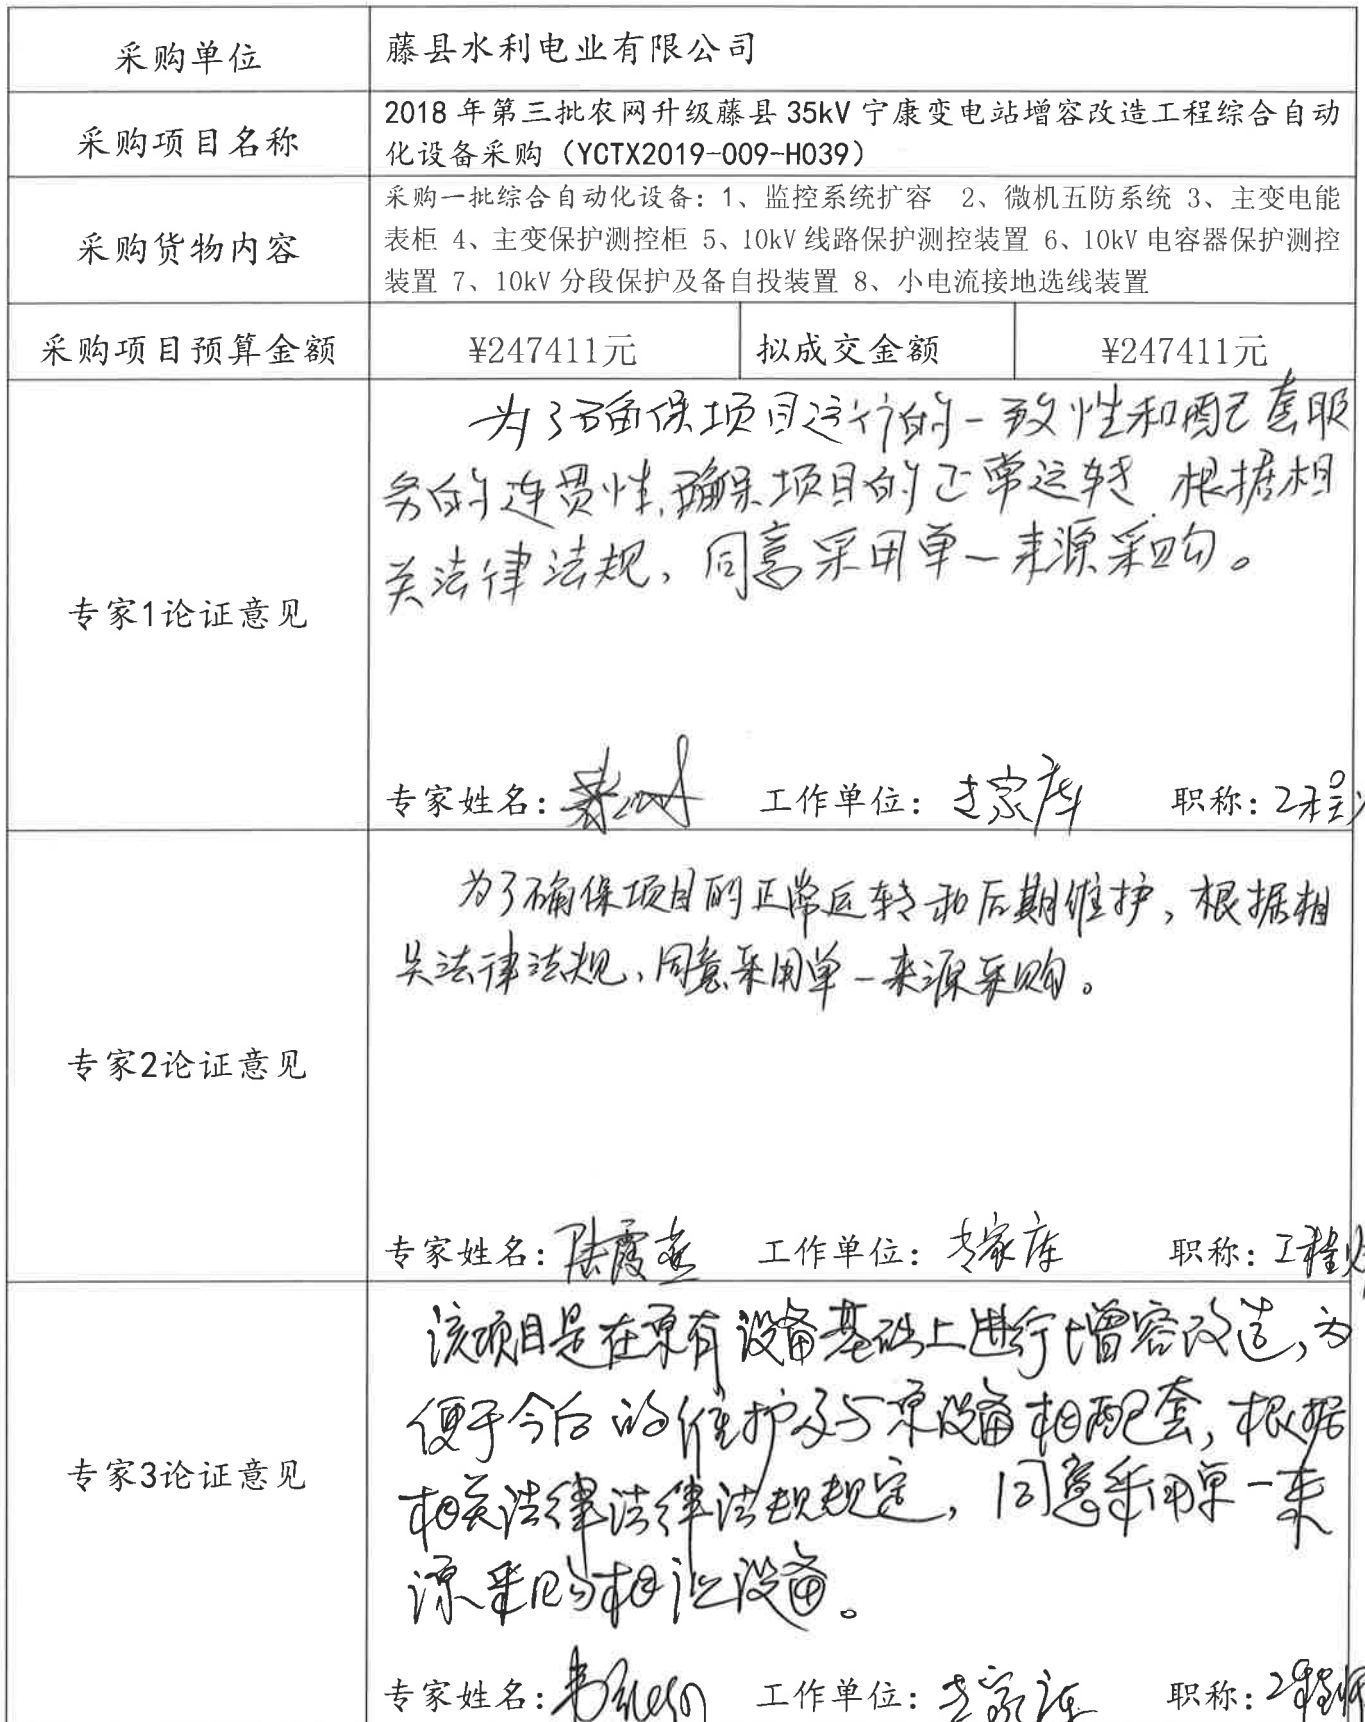 采购单位
藤县水利电业有限公司
采购项目名称
2018年第三批农网升级藤县35kV宁康变电站增容改造工程综合自动
化设备采购（YCTX2019-009-H039）
采购货物内容
采购一批综合自动化设备：1、监控系统扩容 2、微机五防系统 3、主变电能
表柜 4、主变保护测控柜 5、10kV线路保护测控装置 6、10kV电容器保护测控
装置 7、10kV分段保护及备自投装置 8、小电流接地选线装置
采购项目预算金额 ¥247411元 拟成交金额 ¥247411元
专家1论证意见
为了确保项目运行的一致性和配套服
务的连贯性，确保项目的正常运转，根据相
关法律法规，同意采用单一来源采购。
专家姓名： 工作单位：专家库 职称：工程师
专家2论证意见
为了确保项目的正常运转和后期维护，根据相
关法律法规，同意采用单一来源采购。
专家姓名：陆霞燕 工作单位：专家库 职称：工程师
专家3论证意见
该项目是在原有设备基础上进行增容改造，为
便于今后的维护及与原设备相配套，根据
相关法律法律法规规定，同意采用单一来
源采购相设备。
专家姓名： 工作单位：专家库 职称：工程师